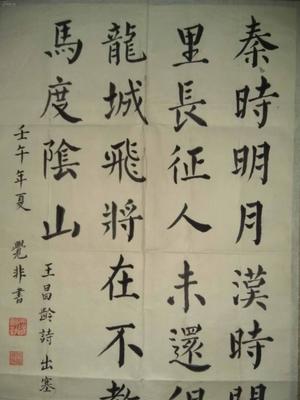 秦時明月漢時關
里長征人未還但
龍城飛將在不教
馬度陰山
王昌齡詩出塞
壬午年夏 覺非書